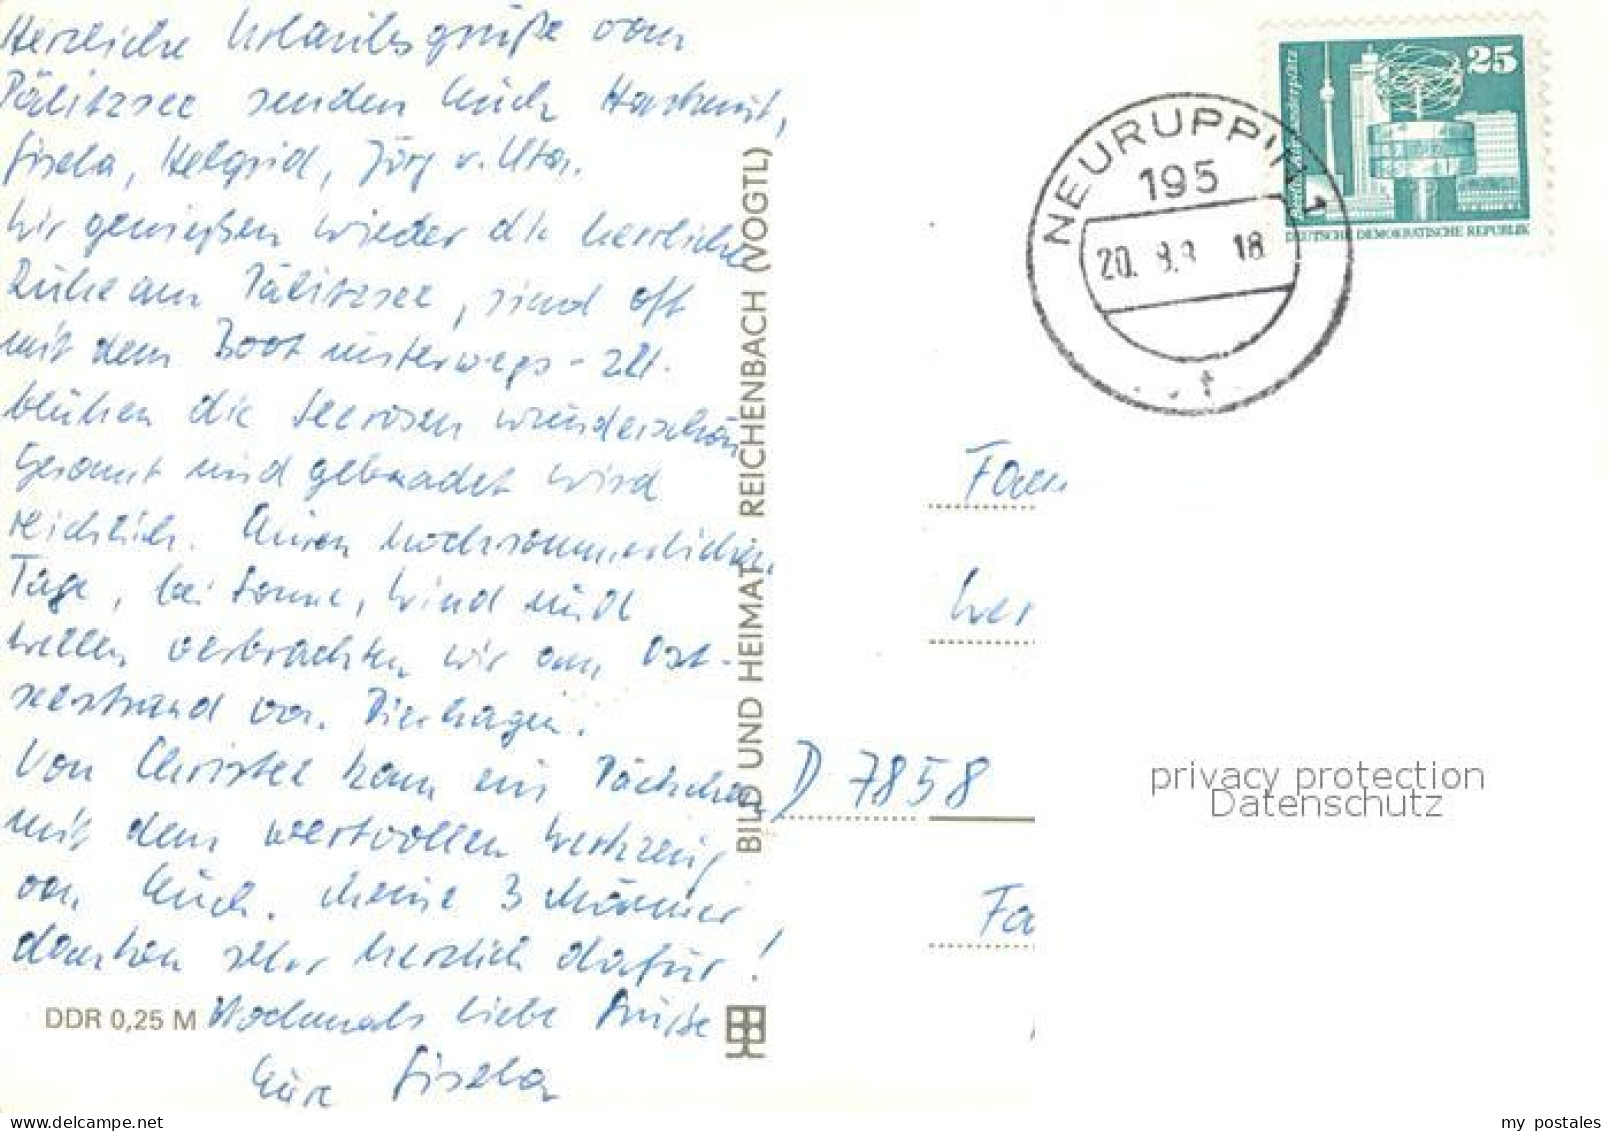 Herzliche Urlaubsgrüße vom
Pälitzsee senden Euch Hartmut,
Gisela, Helgrid, Jörg u. Uta.
Wir genießen wieder die herrliche
Ruhe am Pälitzsee, sind oft
mit dem Boot unterwegs - zZt.
blühen die Seerosen wunderschön
Gesonnt und gebaadet wird
reichlich. Einen hochsommerlichen
Tage, bei Sonne, Wind und
Wellen verbrachten wir am Ost-
seestrand von Dierhagen.
Von Christel kam ein Päckchen
mit dem wertvollen Werkzeug
von Euch. Meine 3 Männer
danken sehr herzlich dafür!
Nochmals liebe Grüße
Eure Gisela
DDR 0,25 M
BILD UND HEIMAT REICHENBACH (VOGTL)
25
DEUTSCHE DEMOKRATISCHE REPUBLIK
NEURUPPIN 1
195
20. 8.8 18
Fam
Wer
D 7858
Fa
privacy protection
Datenschutz
my postales